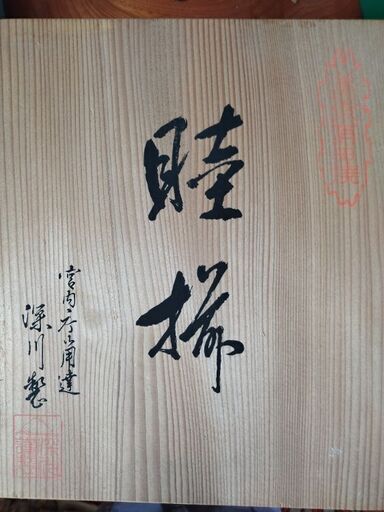 睦揃
宮内庁御用達
深川製